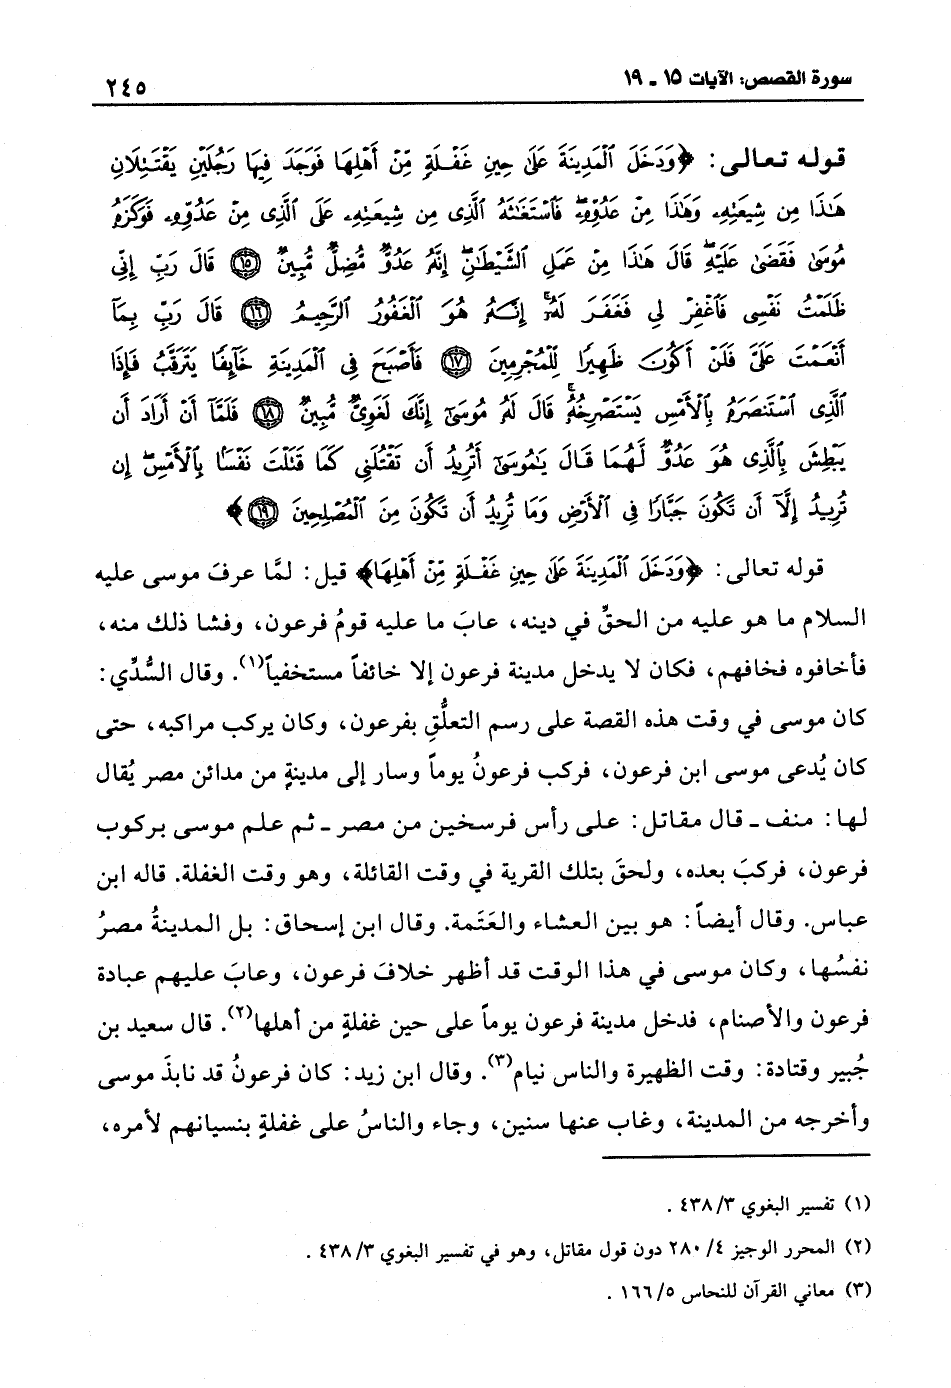 سورة القصص: الآيات ١٥ ـ ١٩
٢٤٥
قوله تعالى: ﴿وَدَخَلَ ٱلْمَدِينَةَ عَلَىٰ حِينِ غَفْلَةٍ مِّنْ أَهْلِهَا فَوَجَدَ فِيهَا رَجُلَيْنِ يَقْتَتِلَانِ
هَٰذَا مِن شِيعَتِهِۦ وَهَٰذَا مِنْ عَدُوِّهِۦۖ فَٱسْتَغَٰثَهُ ٱلَّذِى مِن شِيعَتِهِۦ عَلَى ٱلَّذِى مِنْ عَدُوِّهِۦ فَوَكَزَهُۥ
مُوسَىٰ فَقَضَىٰ عَلَيْهِۖ قَالَ هَٰذَا مِنْ عَمَلِ ٱلشَّيْطَٰنِۖ إِنَّهُۥ عَدُوٌّ مُّضِلٌّ مُّبِينٌ ١٥ قَالَ رَبِّ إِنِّى
ظَلَمْتُ نَفْسِى فَٱغْفِرْ لِى فَغَفَرَ لَهُۥٓۚ إِنَّهُۥ هُوَ ٱلْغَفُورُ ٱلرَّحِيمُ ١٦ قَالَ رَبِّ بِمَآ
أَنْعَمْتَ عَلَىَّ فَلَنْ أَكُونَ ظَهِيرًا لِّلْمُجْرِمِينَ ١٧ فَأَصْبَحَ فِى ٱلْمَدِينَةِ خَآئِفًا يَتَرَقَّبُ فَإِذَا
ٱلَّذِى ٱسْتَنصَرَهُۥ بِٱلْأَمْسِ يَسْتَصْرِخُهُۥۚ قَالَ لَهُۥ مُوسَىٰٓ إِنَّكَ لَغَوِىٌّ مُّبِينٌ ١٨ فَلَمَّآ أَنْ أَرَادَ أَن
يَبْطِشَ بِٱلَّذِى هُوَ عَدُوٌّ لَّهُمَا قَالَ يَٰمُوسَىٰٓ أَتُرِيدُ أَن تَقْتُلَنِى كَمَا قَتَلْتَ نَفْسًۢا بِٱلْأَمْسِۖ إِن
تُرِيدُ إِلَّآ أَن تَكُونَ جَبَّارًا فِى ٱلْأَرْضِ وَمَا تُرِيدُ أَن تَكُونَ مِنَ ٱلْمُصْلِحِينَ ١٩﴾
قوله تعالى: ﴿وَدَخَلَ ٱلْمَدِينَةَ عَلَىٰ حِينِ غَفْلَةٍ مِّنْ أَهْلِهَا﴾ قيل: لمَّا عرفَ موسى عليه
السلام ما هو عليه من الحقِّ في دينه، عابَ ما عليه قومُ فرعون، وفشا ذلك منه،
فأخافوه فخافهم، فكان لا يدخل مدينة فرعون إلا خائفاً مستخفياً(١). وقال السُّدِّي:
كان موسى في وقت هذه القصة على رسم التعلُّقِ بفرعون، وكان يركب مراكبه، حتى
كان يُدعى موسى ابن فرعون، فركب فرعونُ يوماً وسار إلى مدينةٍ من مدائن مصر يُقال
لها: منف ـ قال مقاتل: على رأس فرسخين من مصر ـ ثم علم موسى بركوب
فرعون، فركبَ بعده، ولحقَ بتلك القرية في وقت القائلة، وهو وقت الغفلة. قاله ابن
عباس. وقال أيضاً: هو بين العشاء والعَتَمة. وقال ابن إسحاق: بل المدينةُ مصرُ
نفسُها، وكان موسى في هذا الوقت قد أظهر خلافَ فرعون، وعابَ عليهم عبادة
فرعون والأصنام، فدخل مدينة فرعون يوماً على حين غفلةٍ من أهلها(٢). قال سعيد بن
جُبير وقتادة: وقت الظهيرة والناس نيام(٣). وقال ابن زيد: كان فرعونُ قد نابذَ موسى
وأخرجه من المدينة، وغاب عنها سنين، وجاء والناسُ على غفلةٍ بنسيانهم لأمره،
(١) تفسير البغوي ٤٣٨/٣ .
(٢) المحرر الوجيز ٤/ ٢٨٠ دون قول مقاتل، وهو في تفسير البغوي ٤٣٨/٣ .
(٣) معاني القرآن للنحاس ١٦٦/٥ .